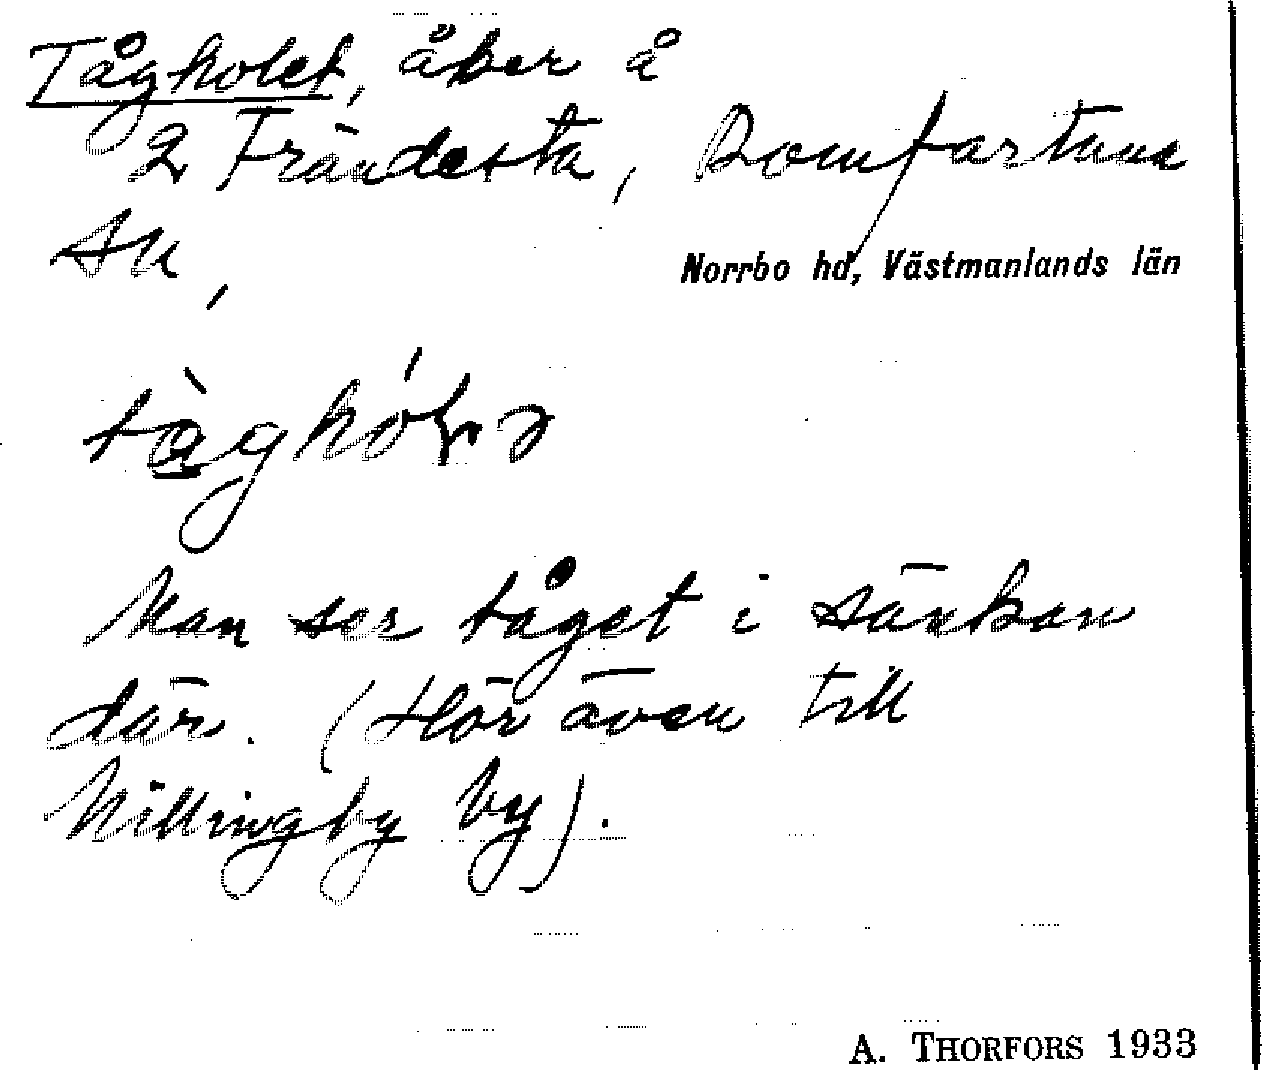 Tågholet, åker å
2 Frändesta, Romfartuna
sn,
Norrbo hd, Västmanlands län
Man ser tåget i sänkan
där. (Hör även till
Nillingby by).
A. THORFORS 1933